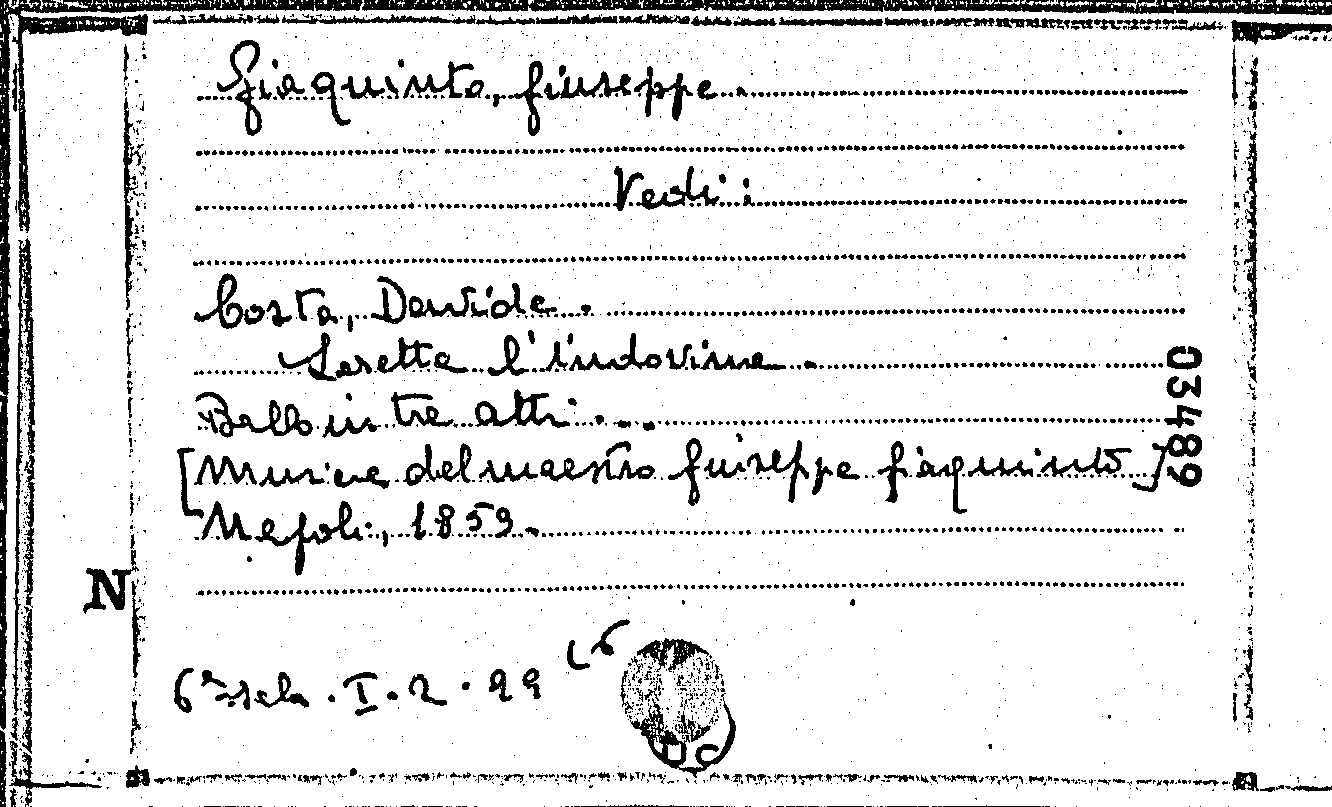 Giaquinto, Giuseppe.
Vedi:
Costa, Davide.
Loretta l'indovina.
Ballo in tre atti...
[Musica del maestro Giuseppe Giaquinto]
Napoli, 1859.
03489
N
6ª sala. I. 2. 29